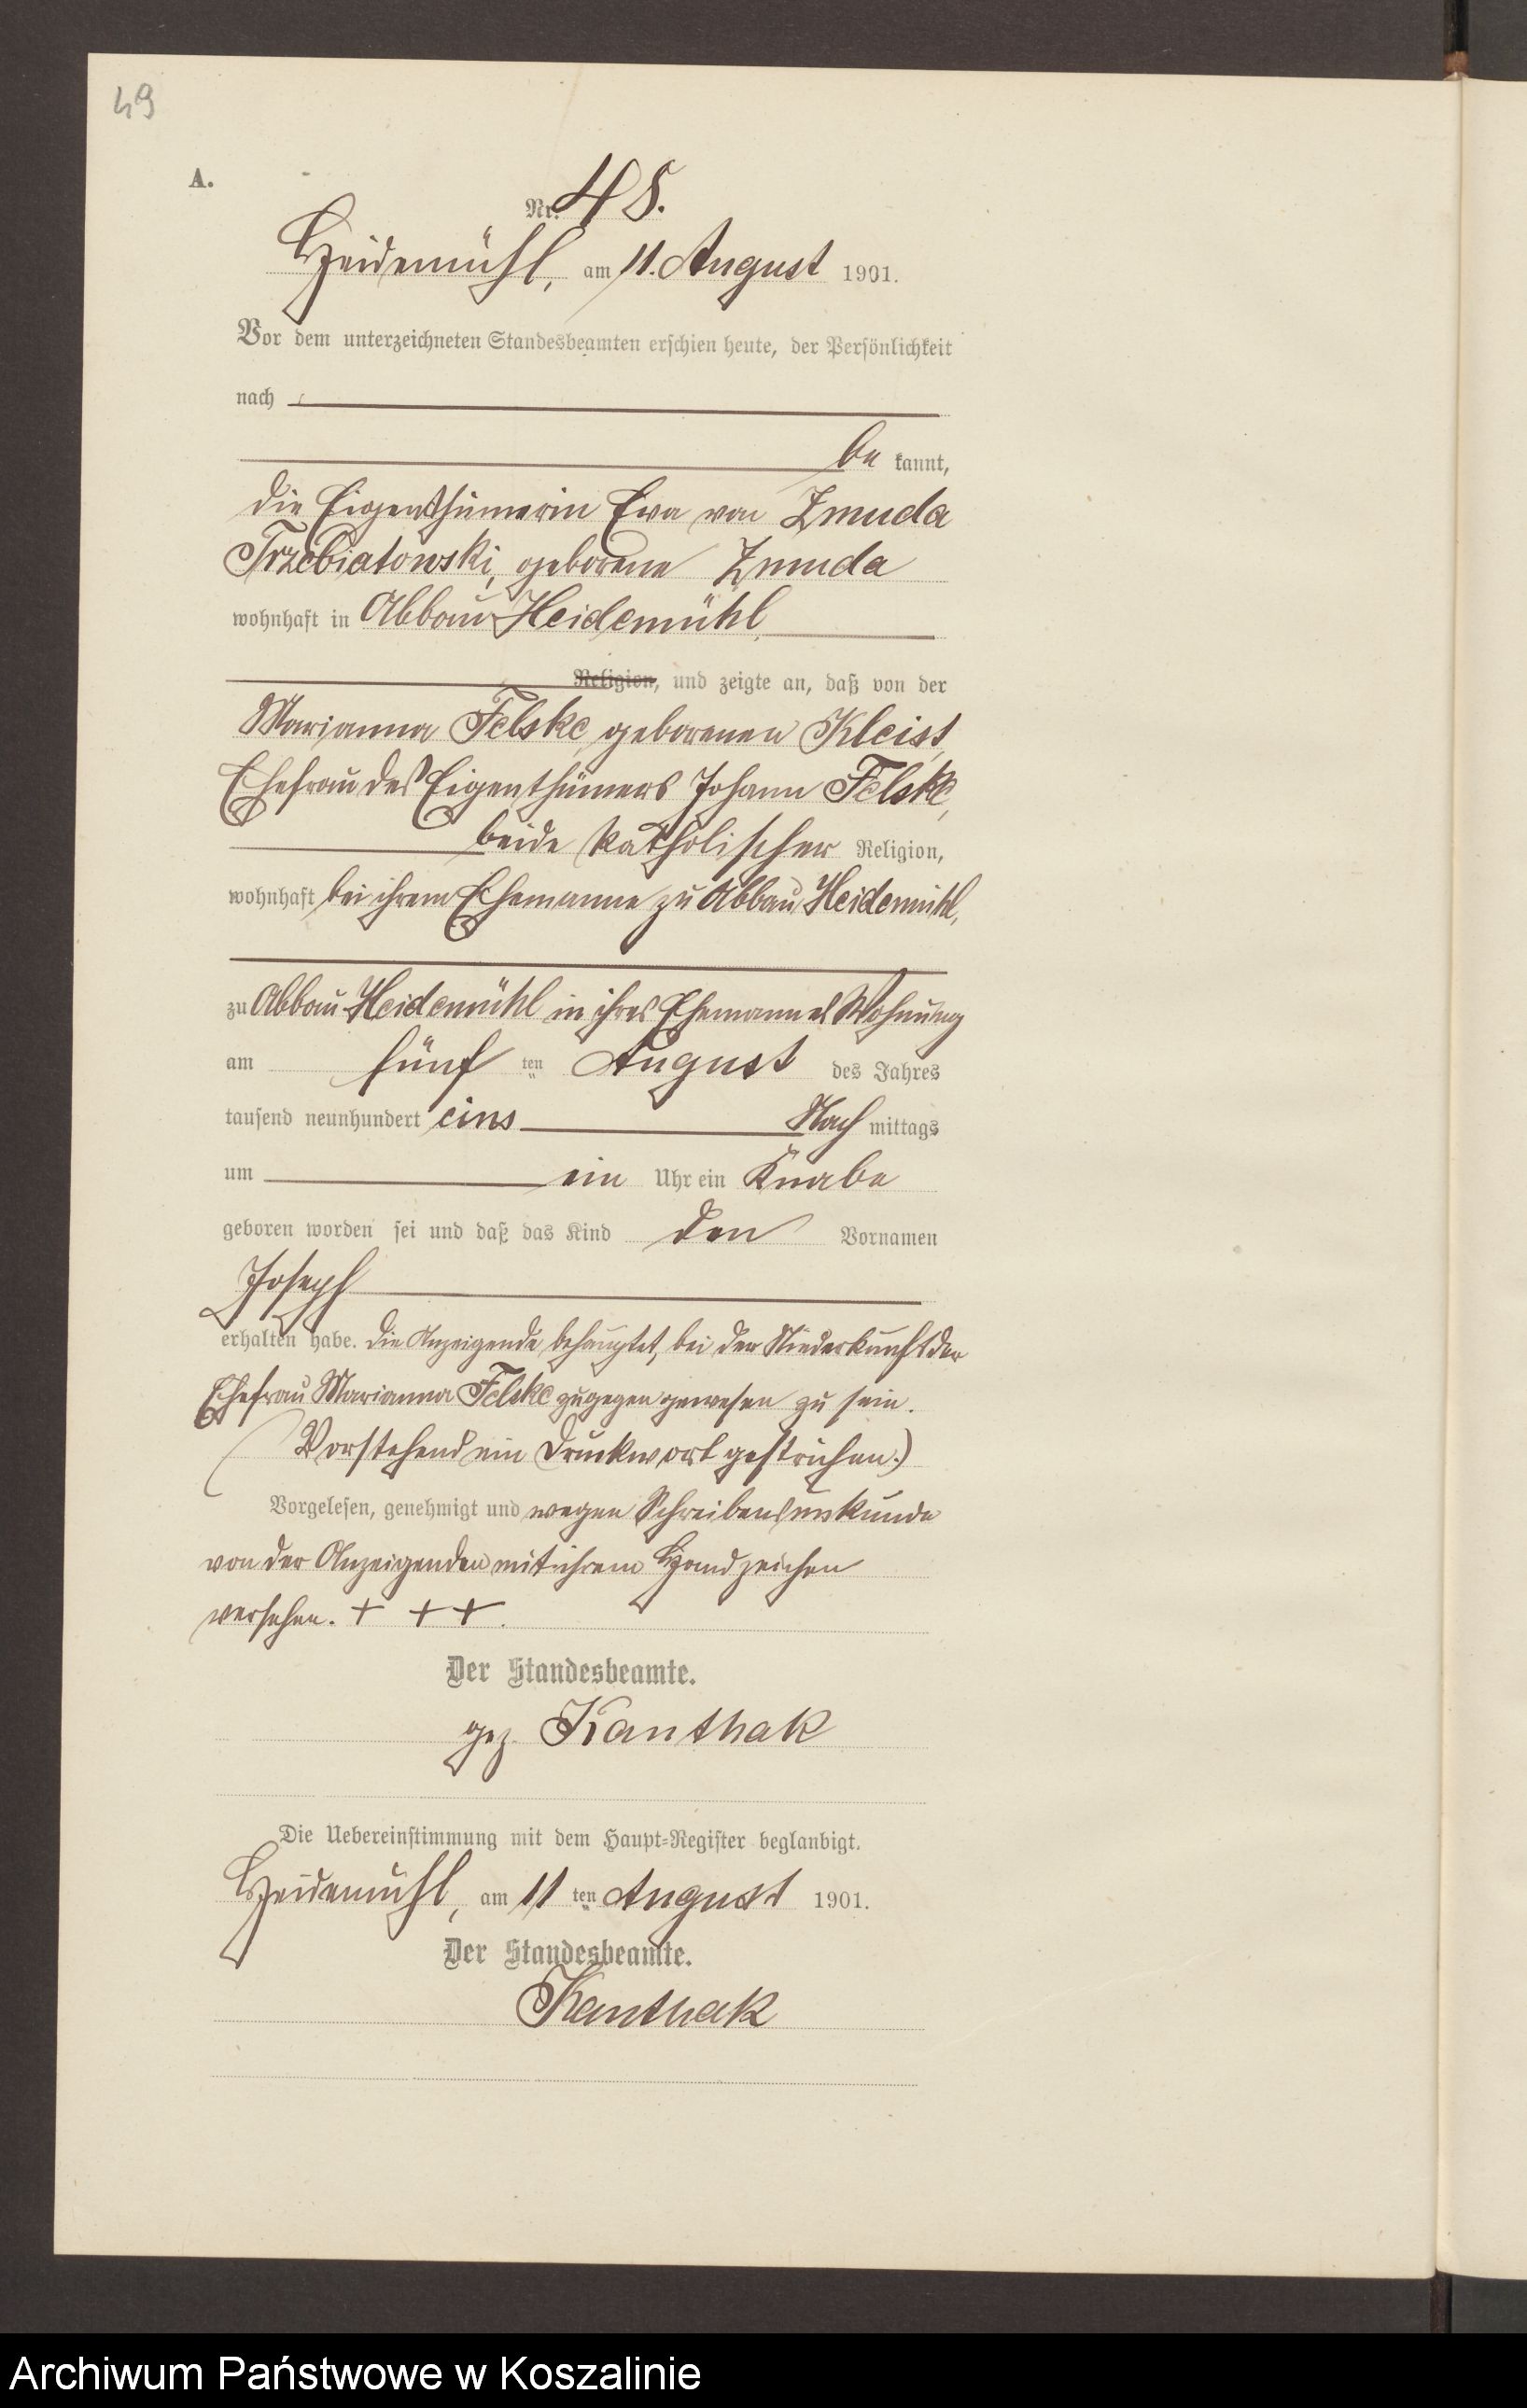 49
A.
Nr. 48.
Heidemühl, am 11. August 1901.
Vor dem unterzeichneten Standesbeamten erschien heute, der Persönlichkeit
nach
be kannt,
die Eigenthümerin Eva von Zmuda
Trzebiatowski, geborene Zmuda
wohnhaft in Abbau Heidemühl,
Religion, und zeigte an, daß von der
Marianna Felske, geborenen Kleist,
Ehefrau des Eigenthümers Johann Felske,
beide katholischer Religion,
wohnhaft bei ihrem Ehemanne zu Abbau Heidemühl,
zu Abbau Heidemühl in ihres Ehemannes Wohnung
am fünf ten August des Jahres
tausend neunhundert eins Nach mittags
um ein Uhr ein Knabe
geboren worden sei und daß das Kind den Vornamen
Joseph
erhalten habe. Die Anzeigende behauptet, bei der Niederkunft der
Ehefrau Marianna Felske zugegen gewesen zu sein.
(Vorstehend ein Druckwort gestrichen.)
Vorgelesen, genehmigt und wegen Schreibensunkunde
von der Anzeigenden mit ihrem Handzeichen
versehen. + + +.
Der Standesbeamte.
gez. Kanthak
Die Uebereinstimmung mit dem Haupt=Register beglaubigt.
Heidemühl, am 11 ten August 1901.
Der Standesbeamte.
Kanthak
Archiwum Państwowe w Koszalinie